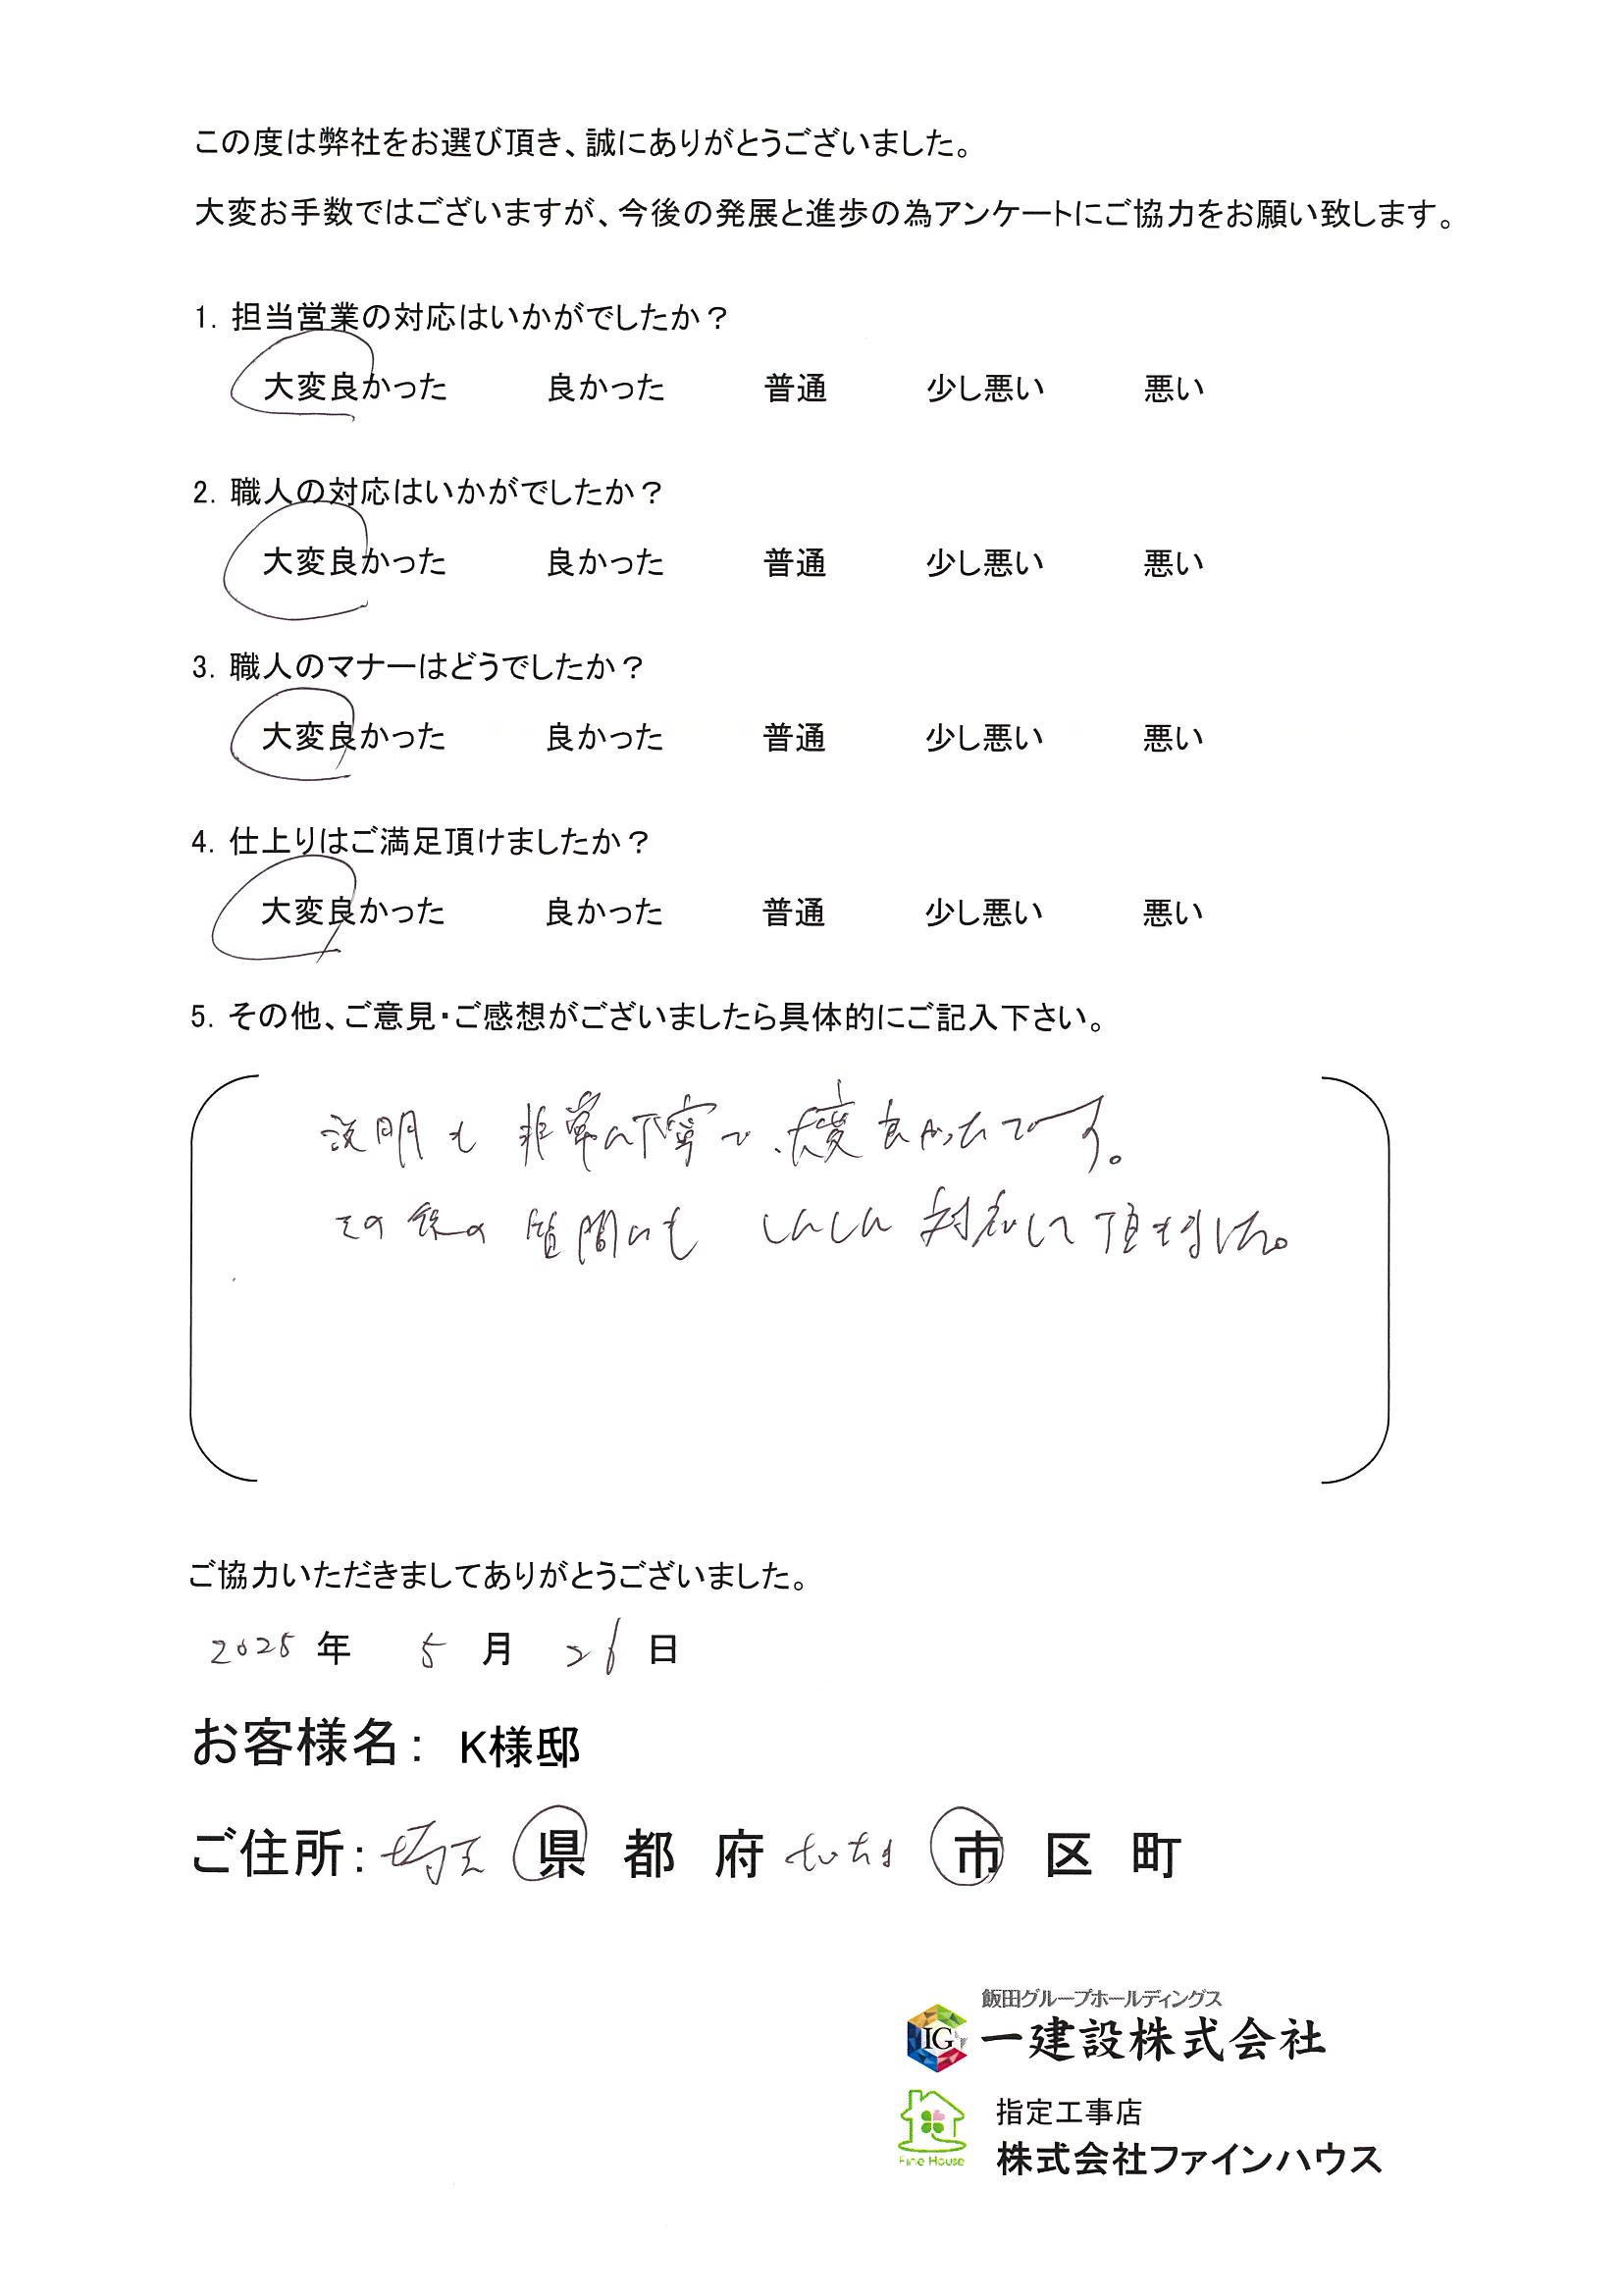 この度は弊社をお選び頂き、誠にありがとうございました。
大変お手数ではございますが、今後の発展と進歩の為アンケートにご協力をお願い致します。
1. 担当営業の対応はいかがでしたか？
大変良かった 良かった 普通 少し悪い 悪い
2. 職人の対応はいかがでしたか？
大変良かった 良かった 普通 少し悪い 悪い
3. 職人のマナーはどうでしたか？
大変良かった 良かった 普通 少し悪い 悪い
4. 仕上りはご満足頂けましたか？
大変良かった 良かった 普通 少し悪い 悪い
5. その他、ご意見・ご感想がございましたら具体的にご記入下さい。
説明も非常に丁寧で、大変良かったです。
その後の質問にも 対応して頂きました。
ご協力いただきましてありがとうございました。
2025 年 5 月 26 日
お客様名： K様邸
ご住所：埼玉 県 都 府 さいたま 市 区 町
飯田グループホールディングス
IG 一建設株式会社
指定工事店
Fine House 株式会社ファインハウス